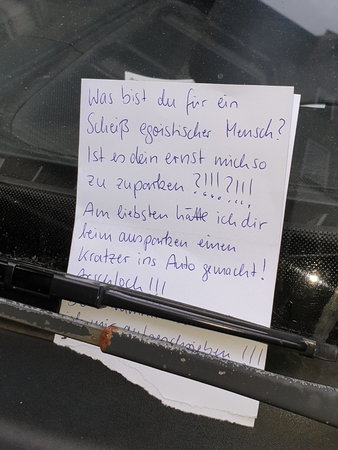 Was bist du für ein
Scheiß egoistischer Mensch?
Ist es dein ernst mich so
zu zuparken ?!!! ?!!!
Am liebsten hätte ich dir
beim ausparken einen
Kratzer ins Auto gemacht!
Arschloch !!!
aufgeschrieben !!!